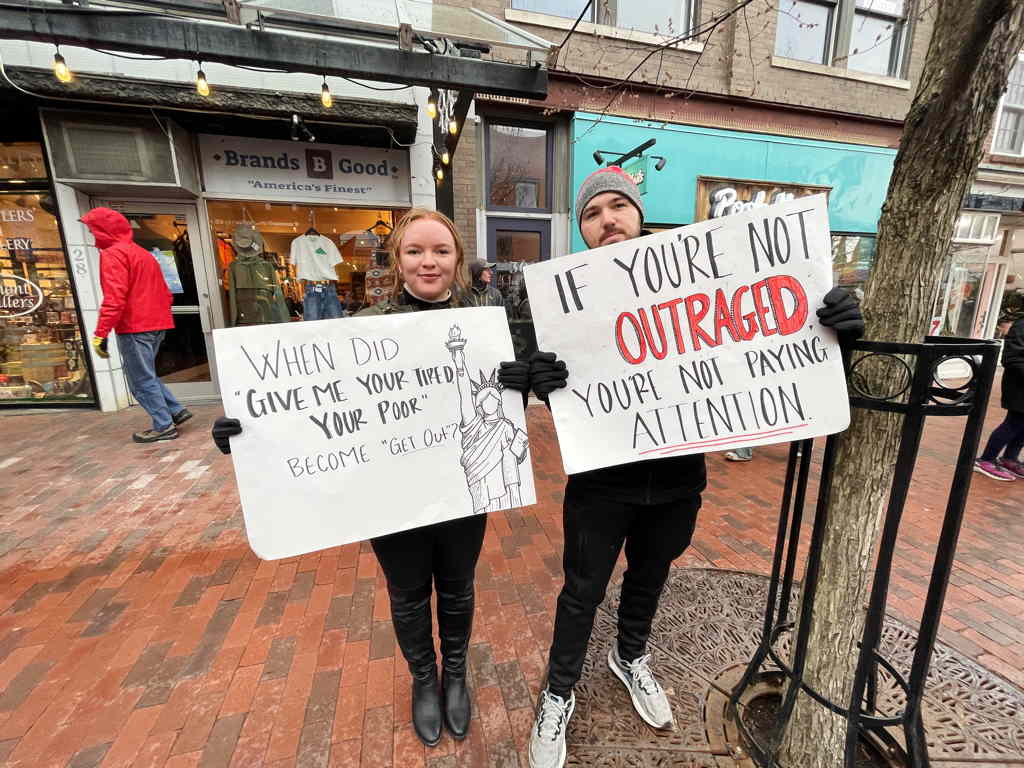 Brands B Good
"America's Finest"
28
WHEN DID
"GIVE ME YOUR TIRED,
YOUR POOR"
BECOME "GET OUT"?
IF YOU'RE NOT
OUTRAGED,
YOU'RE NOT PAYING
ATTENTION.